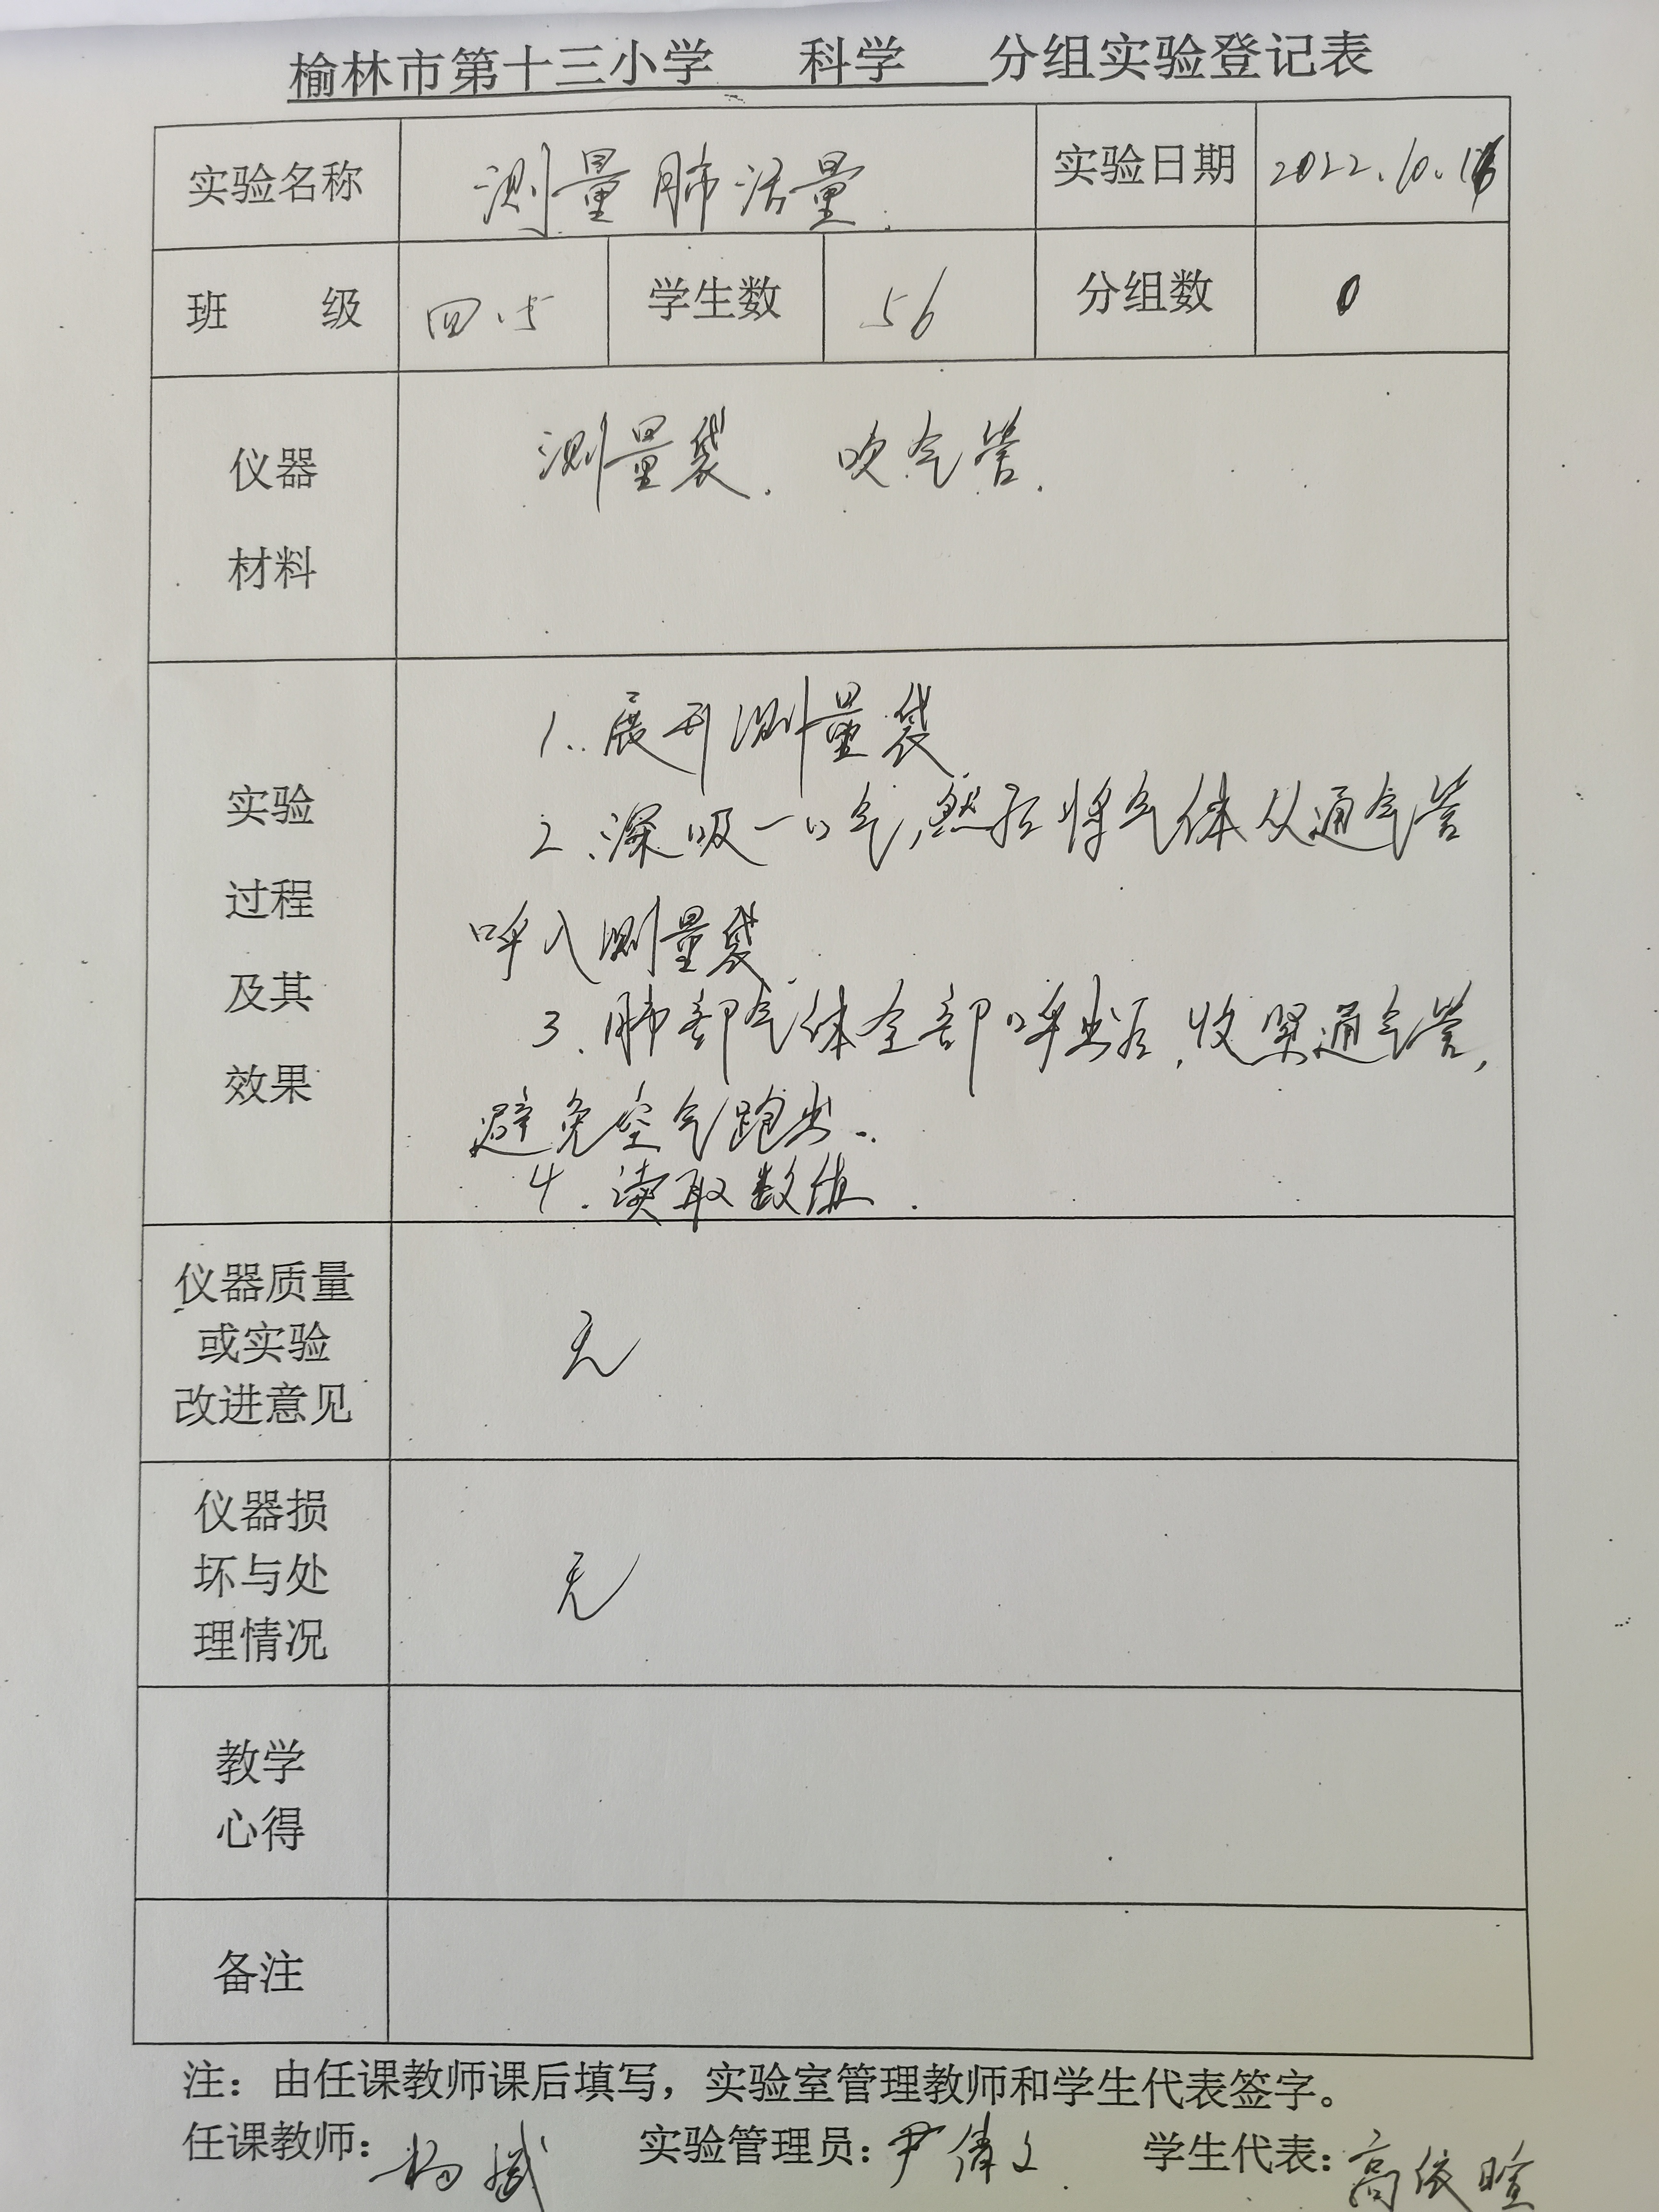 榆林市第十三小学 科学 分组实验登记表
实验名称 测量肺活量. 实验日期 2022.10.
班 级 四.5 学生数 56 分组数 0
仪器 测量袋. 吹气管.
材料
1. 展开测量袋
2、深吸一口气,然后将气体从通气管
实验
过程 呼入测量袋.
及其 3.肺部气体全部呼出后,收紧通气管,
效果 避免空气跑出.
4.读取数值.
仪器质量
或实验 无
改进意见
仪器损
坏与处 无
理情况
教学
心得
备注
注：由任课教师课后填写，实验室管理教师和学生代表签字。
任课教师： 杨 实验管理员：尹倩文 学生代表：高依暄